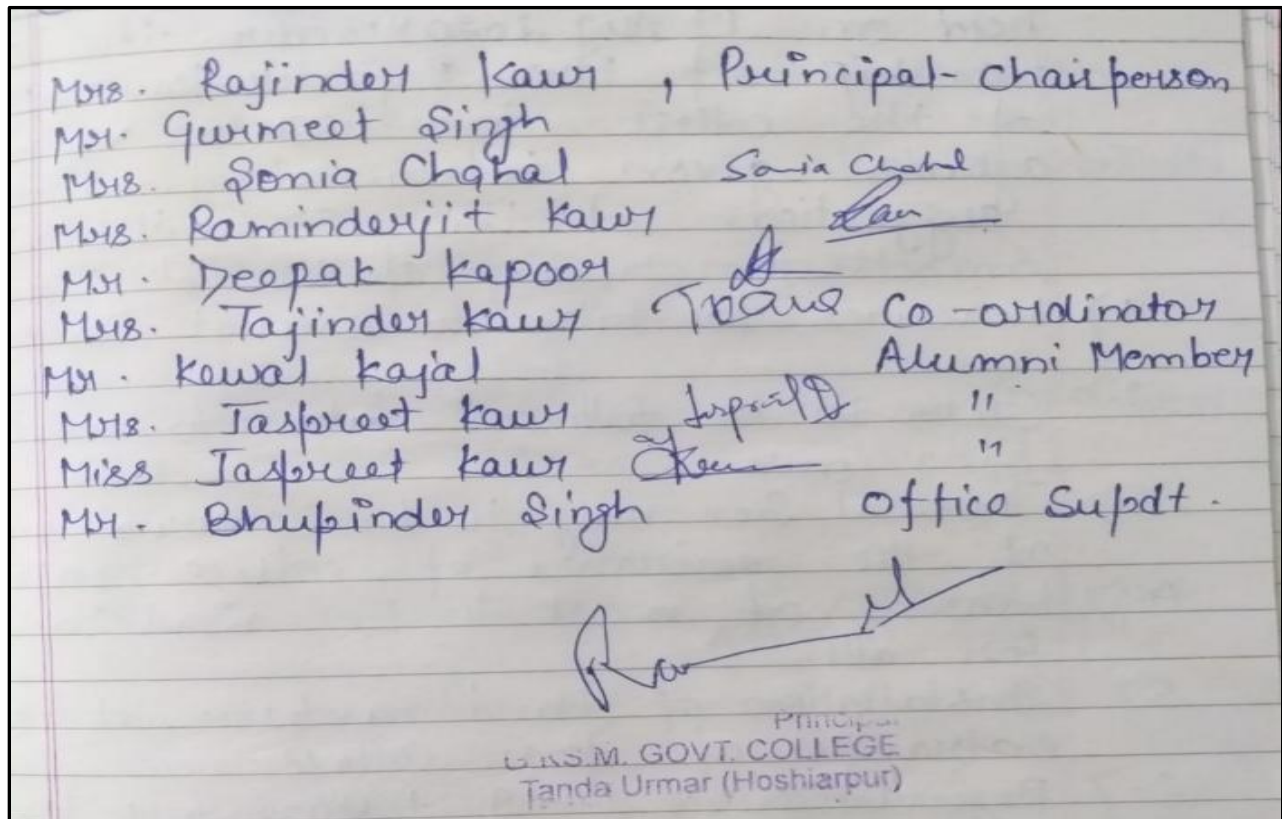 Mrs. Rajinder Kaur , Principal- Chairperson
Mr. Gurmeet Singh
Mrs. Sonia Chahal Sonia Chahal
Mrs. Raminderjit Kaur
Mr. Deepak Kapoor
Mrs. Tajinder Kaur Co-ordinator
Mr. Kewal Kajal Alumni Member
Mrs. Jaspreet Kaur "
Miss Jaspreet Kaur "
Mr. Bhupinder Singh Office Supdt.
Principal
G.K.S.M. GOVT. COLLEGE
Tanda Urmar (Hoshiarpur)